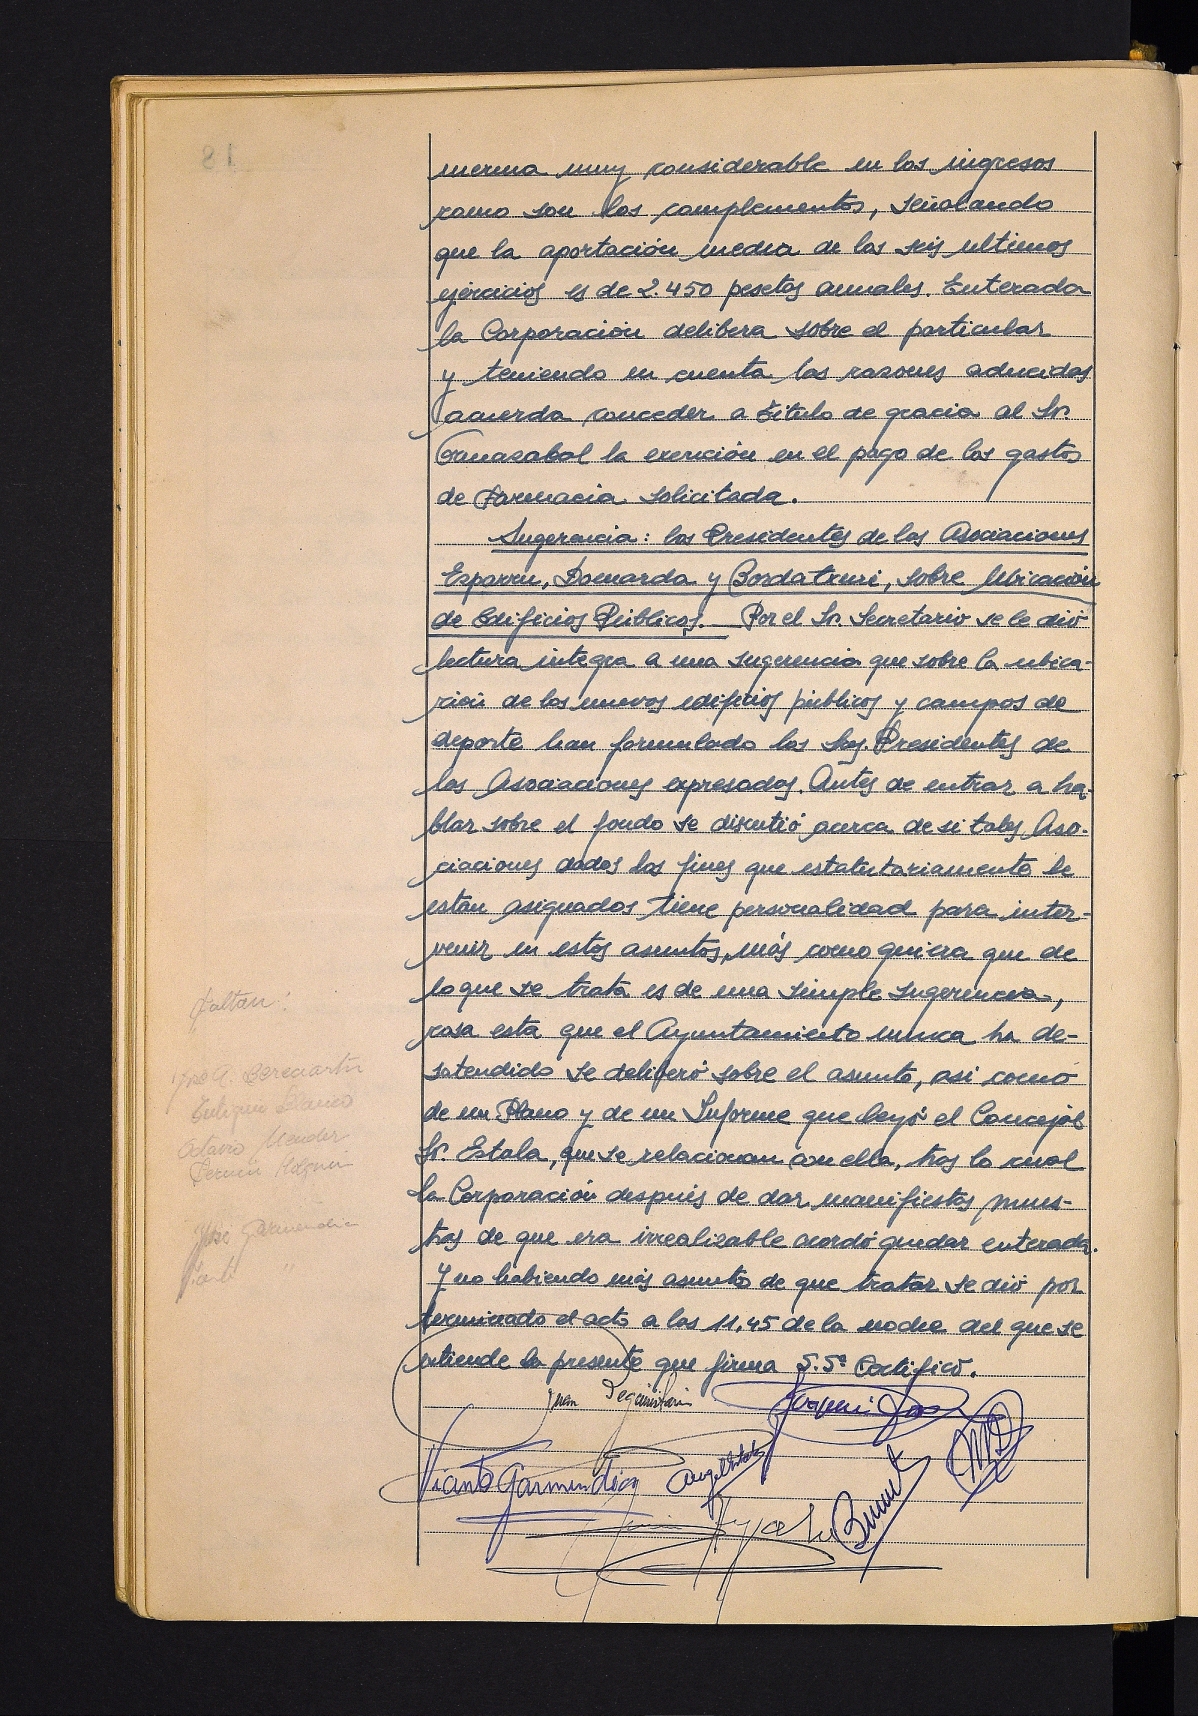 merma muy considerable en los ingresos
como son los complementos, señalando
que la aportación media de los seis ultimos
ejercicios es de 2.450 pesetas anuales. Enterada
la Corporación delibera sobre el particular
y teniendo en cuenta las razones aducidas
acuerda conceder a titulo de gracia al Sr.
Ganazabal la exención en el pago de los gastos
de Farmacia solicitada.
Sugerencia: los Presidentes de las Asociaciones
Esparru, Domarda y Bordatxuri, sobre Ubicación
de Edificios Públicos. Por el Sr. Secretario se le dió
lectura integra a una sugerencia que sobre la ubica-
ción de los nuevos edificios públicos y campos de
deporte han formulado los Srs. Presidentes de
las Asociaciones expresadas. Antes de entrar a ha-
blar sobre el fondo se discutió acerca de si tales Aso-
ciaciones dados los fines que estatutariamente le
estan asignados tiene personalidad para inter-
venir en estos asuntos, más como quiera que de
lo que se trata es de una simple sugerencia,
cosa esta que el Ayuntamiento nunca ha de-
satendido se deliberó sobre el asunto, asi como
de un Plano y de un Informe que leyó el Concejal
Sr. Estala, que se relacionan con ella, tras lo cual
la Corporación después de dar manifiestas mues-
tras de que era irrealizable acordó quedar enterada.
Y no habiendo más asuntos de que tratar se dió por
terminado el acto a las 11,45 de la noche del que se
extiende la presente que firma S.Sª Certifico.
Faltan:
Blanco
Octavio Mendez
Fermín Holguin
José Garmendia
"
Juan
Garmendia